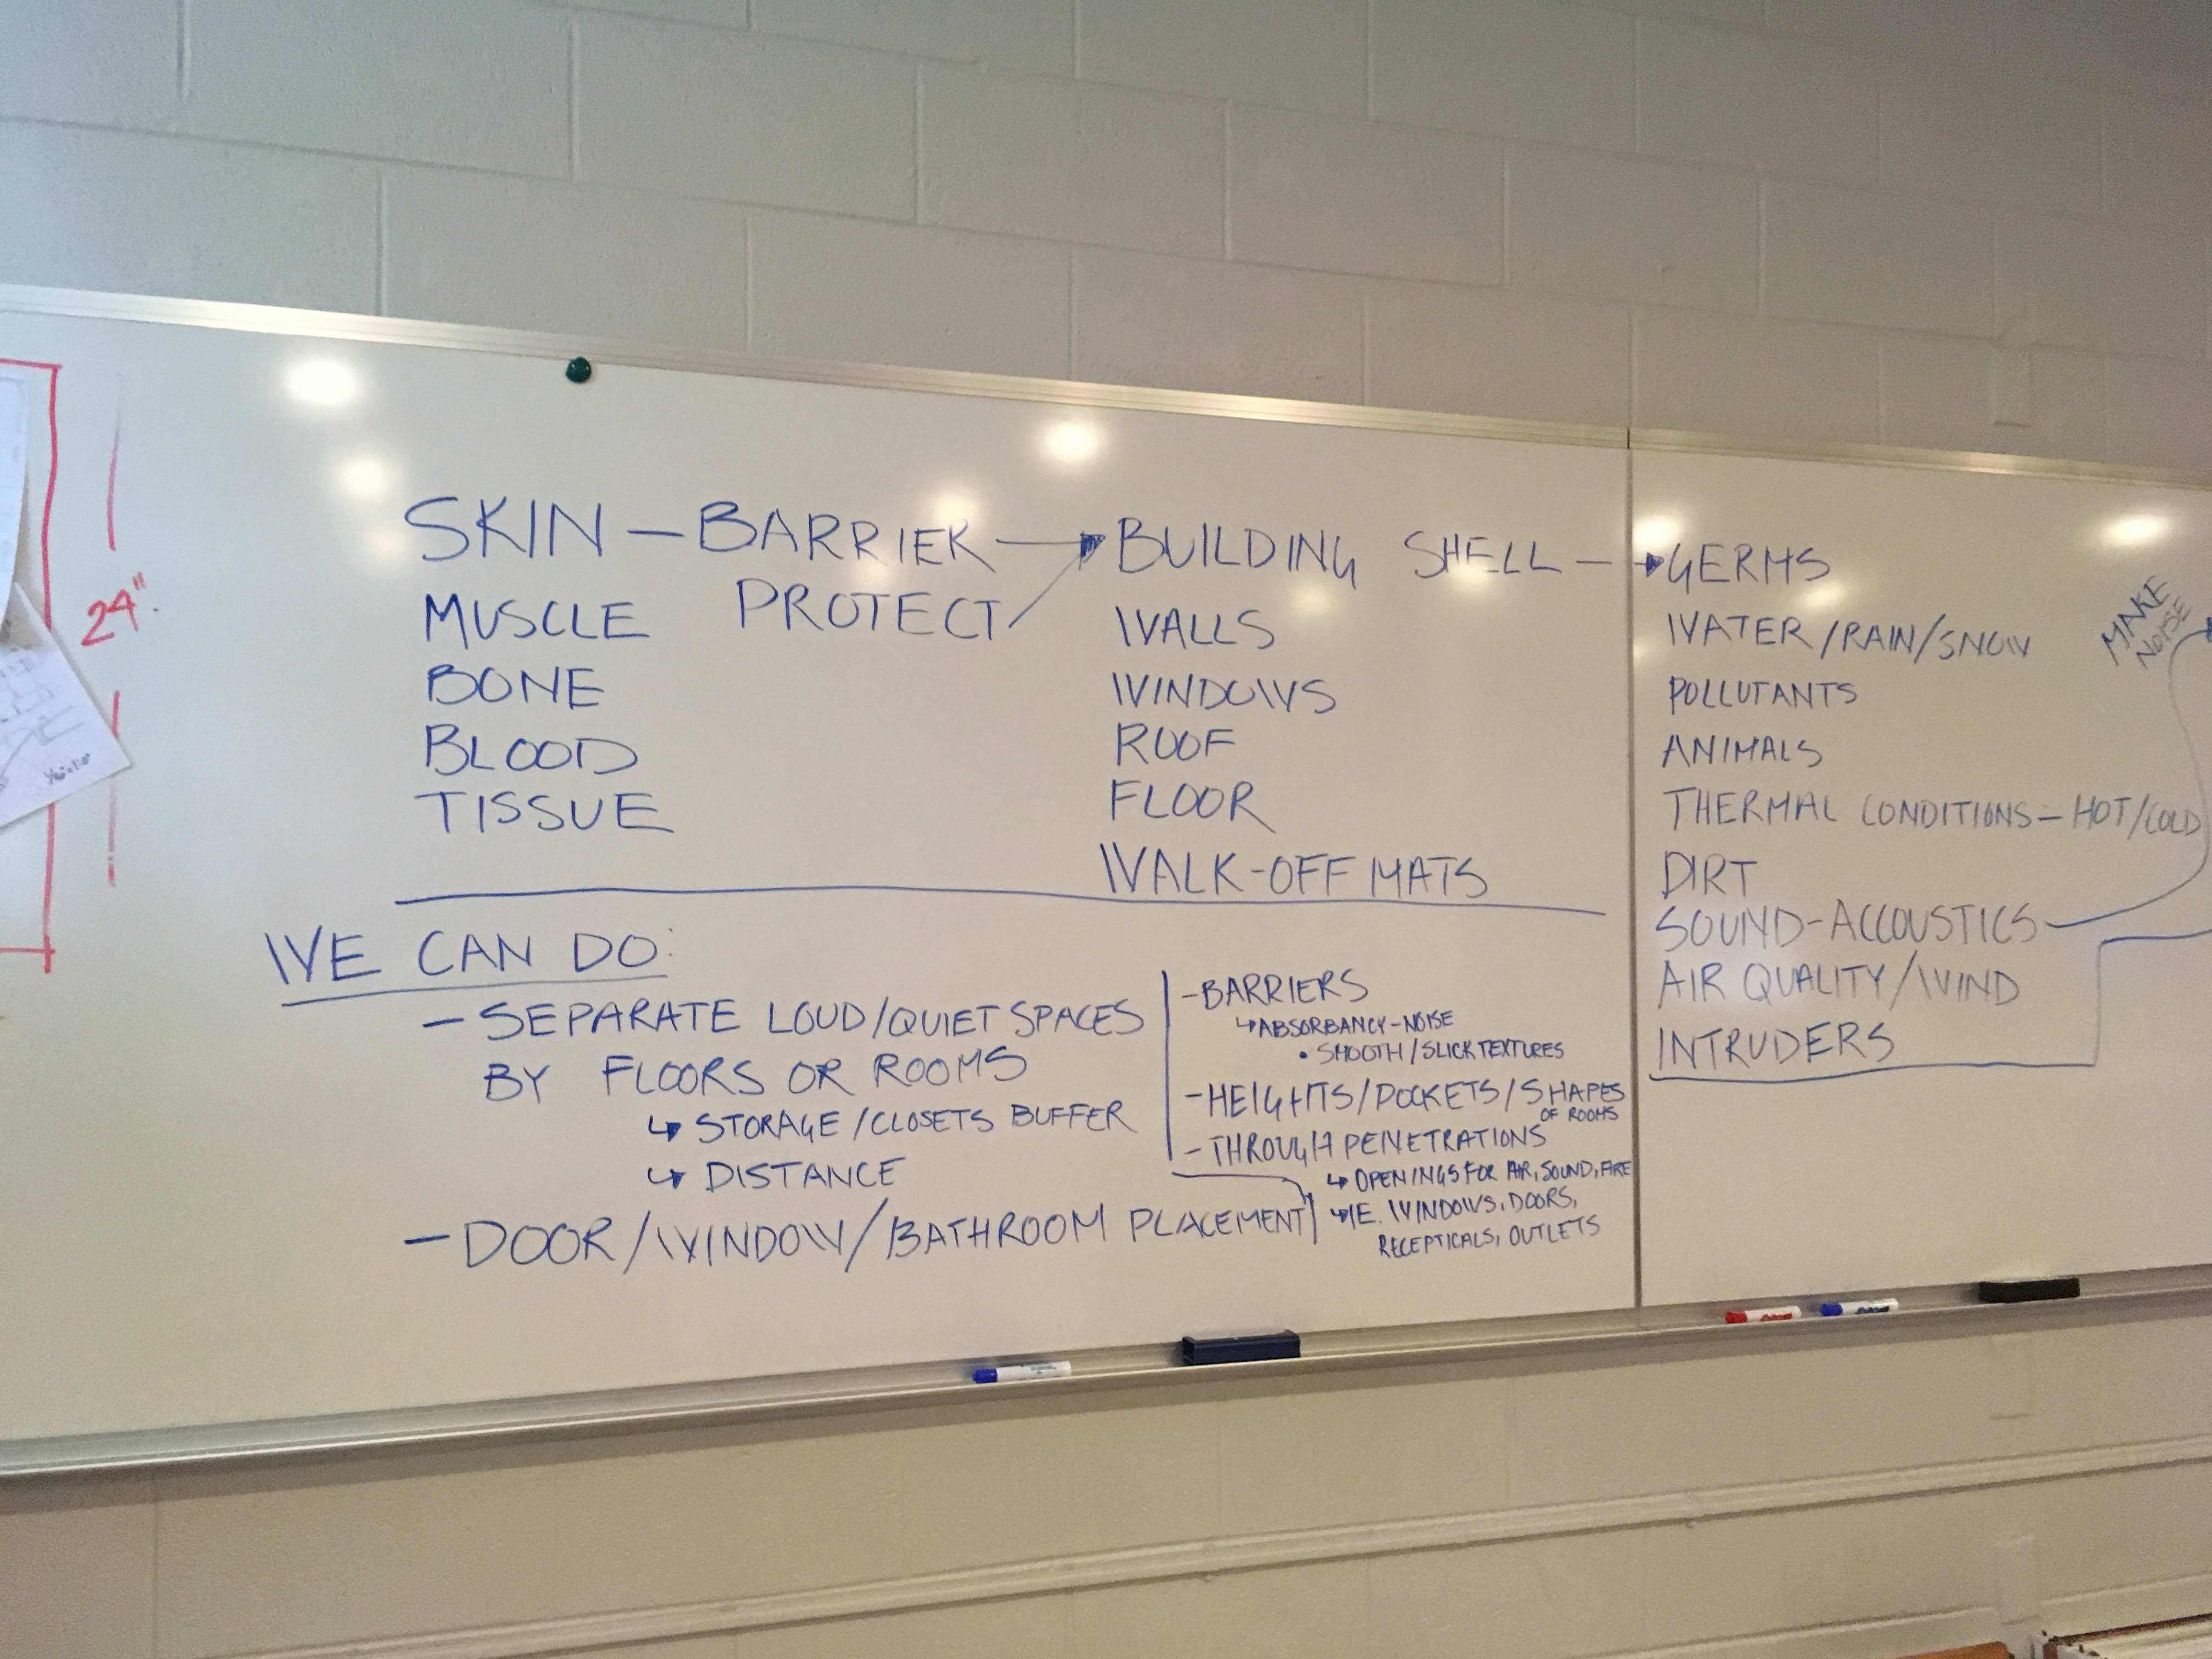 24"
SKIN – BARRIER → BUILDING SHELL – → GERMS
MUSCLE PROTECT
BONE
BLOOD
TISSUE
WALLS
WINDOWS
ROOF
FLOOR
WALK-OFF MATS
WATER/RAIN/SNOW
POLLUTANTS
ANIMALS
THERMAL CONDITIONS – HOT/COLD
DIRT
SOUND-ACCOUSTICS
AIR QUALITY/WIND
INTRUDERS
MAKE
NOISE
WE CAN DO:
– SEPARATE LOUD/QUIET SPACES
BY FLOORS OR ROOMS
↳ STORAGE/CLOSETS BUFFER
↳ DISTANCE
– DOOR/WINDOW/BATHROOM PLACEMENT
– BARRIERS
↳ ABSORBANCY-NOISE
• SMOOTH/SLICK TEXTURES
– HEIGHTS/POCKETS/SHAPES
OF ROOMS
– THROUGH PENETRATIONS
↳ OPENINGS FOR AIR, SOUND, FIRE
↳ IE. WINDOWS, DOORS,
RECEPTICALS, OUTLETS